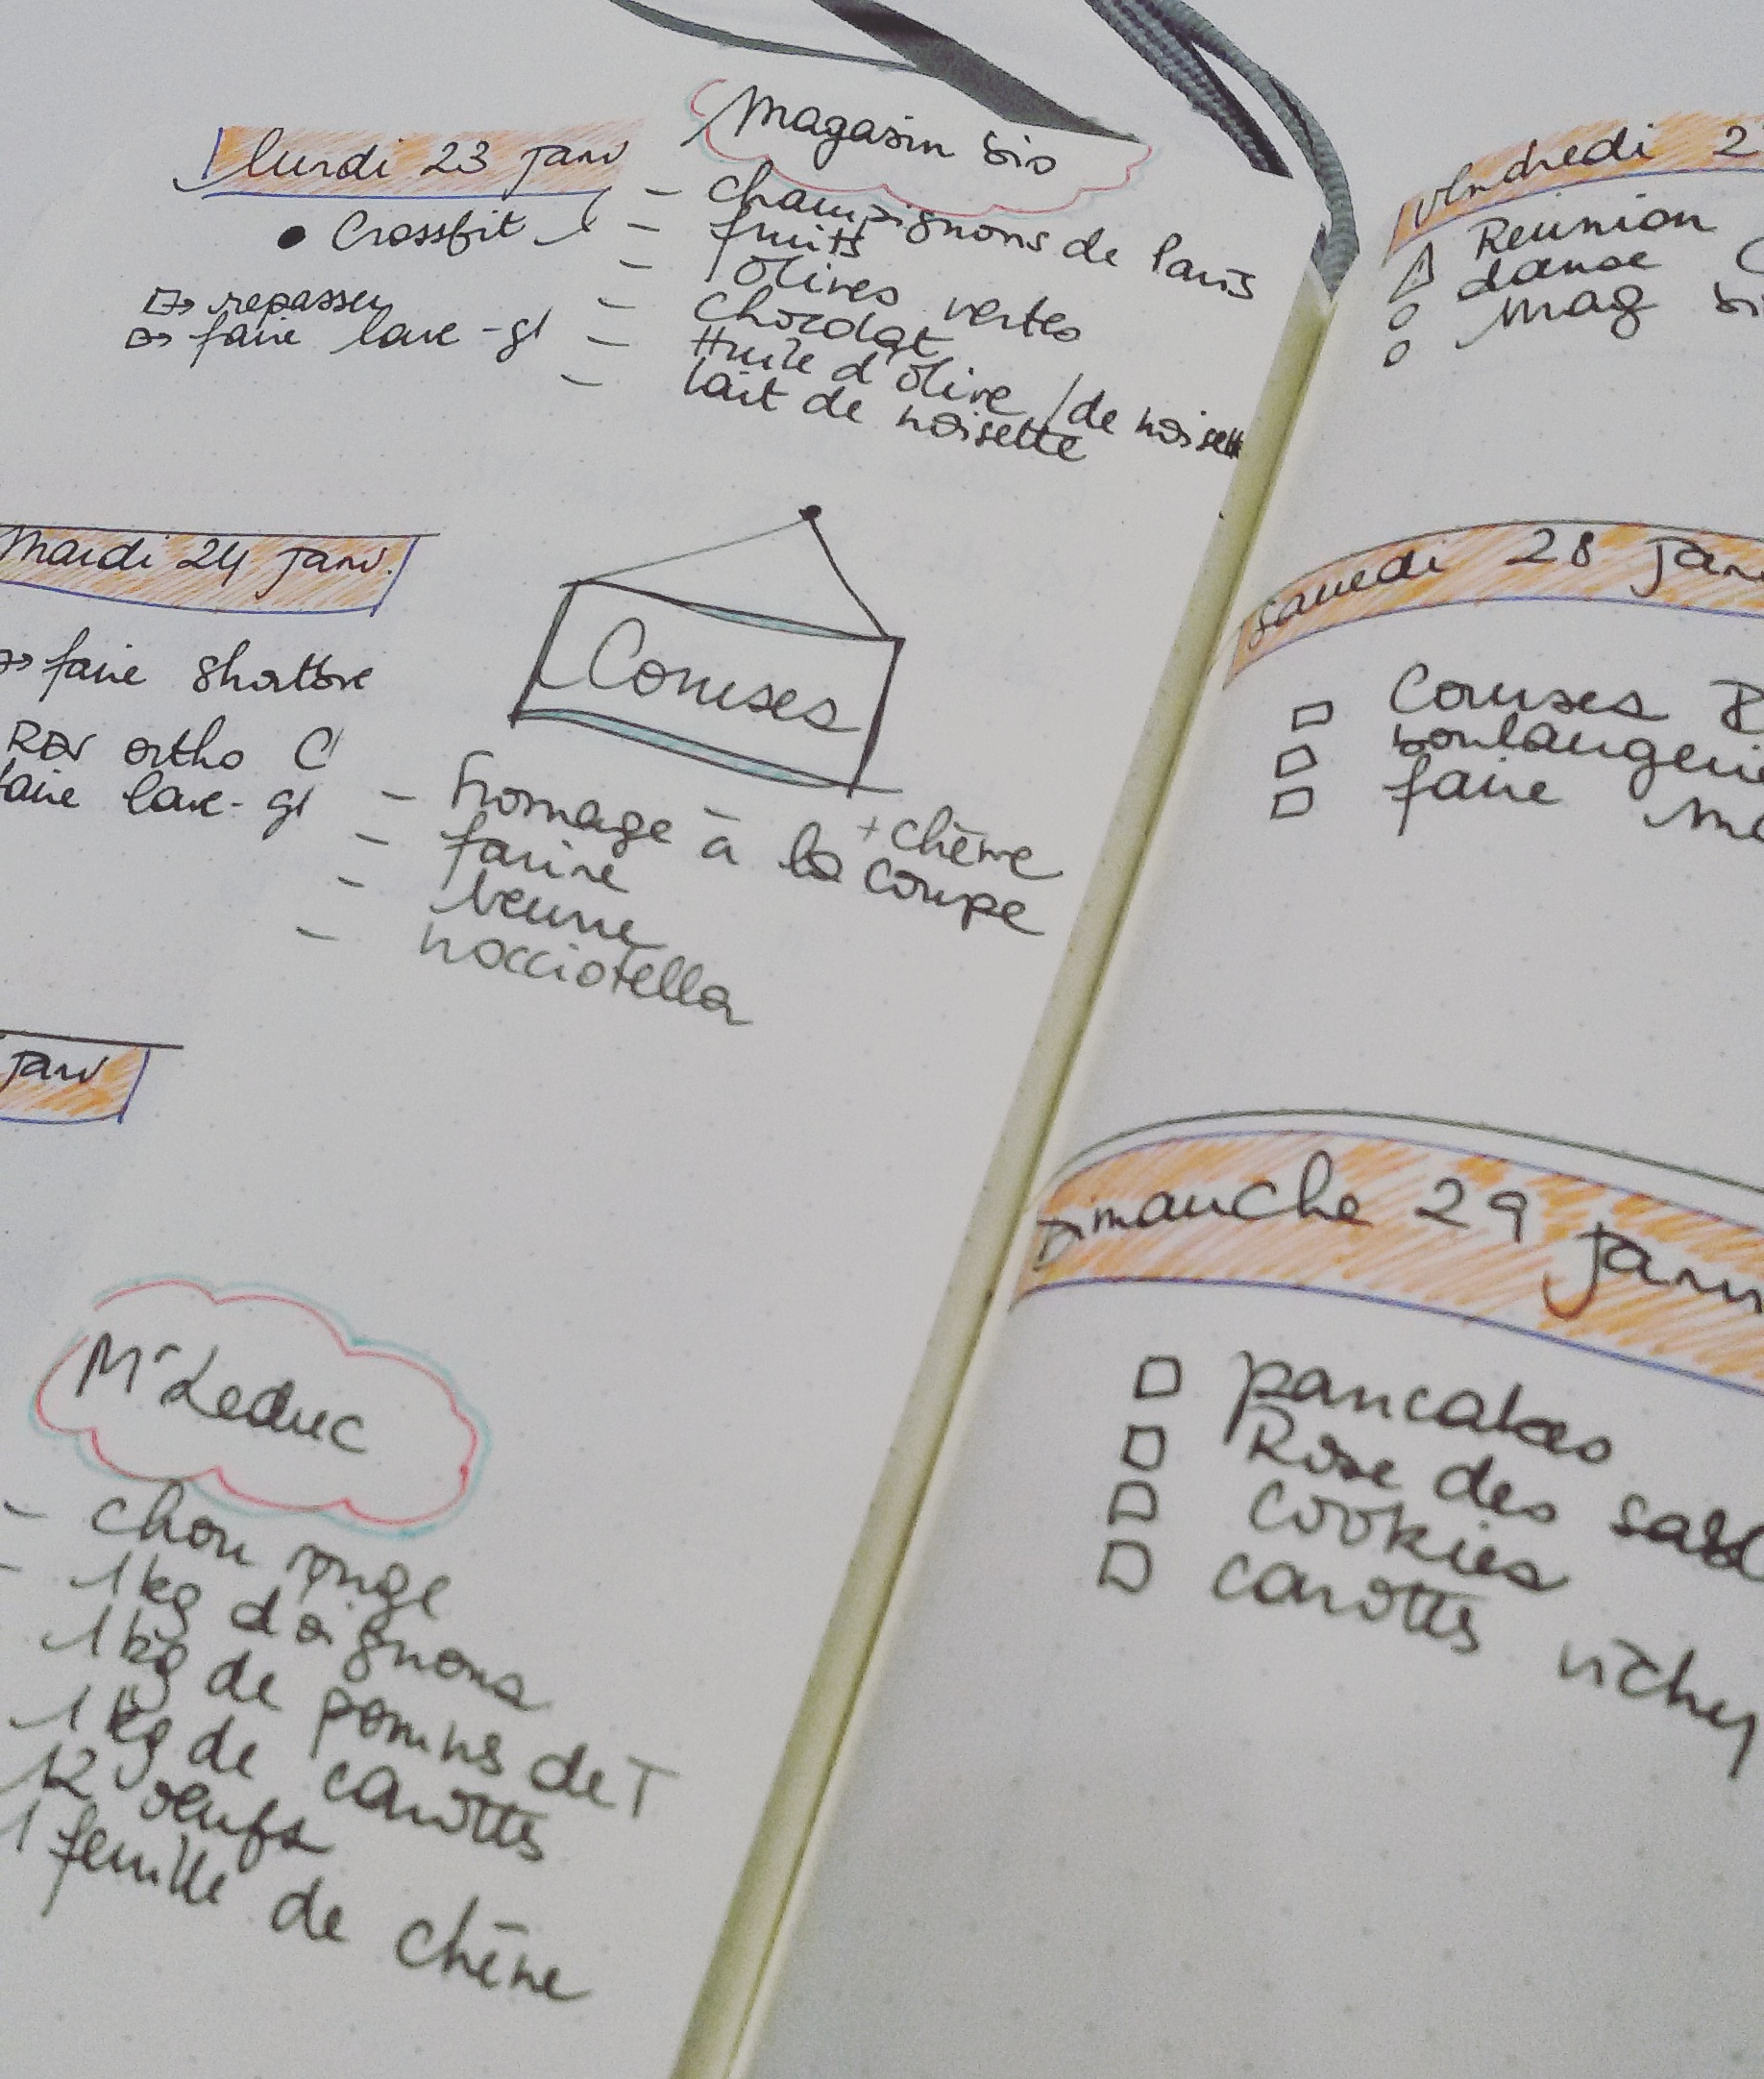 lundi 23 janv
• Crossfit
repasser
faire lave-gl
Magasin bio
- champignons de Paris
- fruits
- Olives vertes
- Chocolat
- Huile d'olive / de noisette
- lait de noisette
Mardi 24 janv.
faire
RDV ortho C
faire lave-gl
Courses
- Fromage à la coupe + chèvre
- farine
- beurre
- nocciotella
janv
Mr Leduc
- chou rouge
- 1 kg d'oignons
1 kg de pommes de T
1 kg de carottes
12 oeufs
1 feuille de chêne
vendredi 2
Réunion
danse
Mag bi
samedi 28 janv
Courses
boulangerie
faire
Dimanche 29 janv
pancakes
Rose des sabl
Cookies
carottes vichy